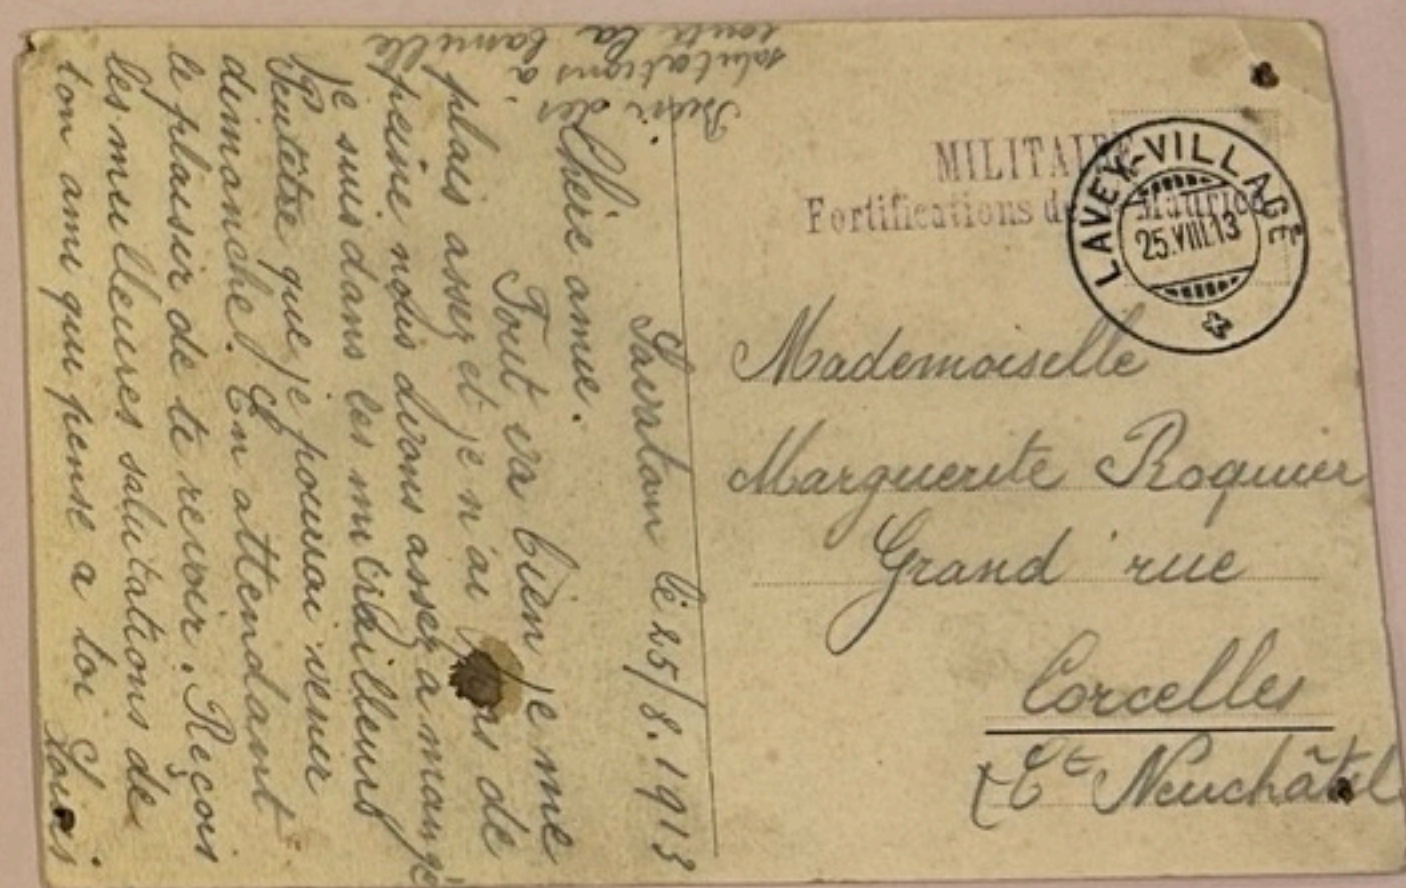 MILITAIRE
Fortifications de Maurice
LAVEY-VILLAGE
25.VIII.13
Mademoiselle
Marguerite Roquier
Grand'rue
Corcelles
(Ct Neuchâtel
Savatan le 25/8.1913
Chère amie.
Tout va bien je me
plais assez et je n'ai pas de
peine nous avons assez a mangé
je suis dans les mitrailleurs
Peutêtre que je pourrai venir
dimanche. En attendant
le plaisir de te revoir. Reçois
les meilleures salutations de
ton ami qui pense a toi Louis
Bien des
salutations à
toute la famille